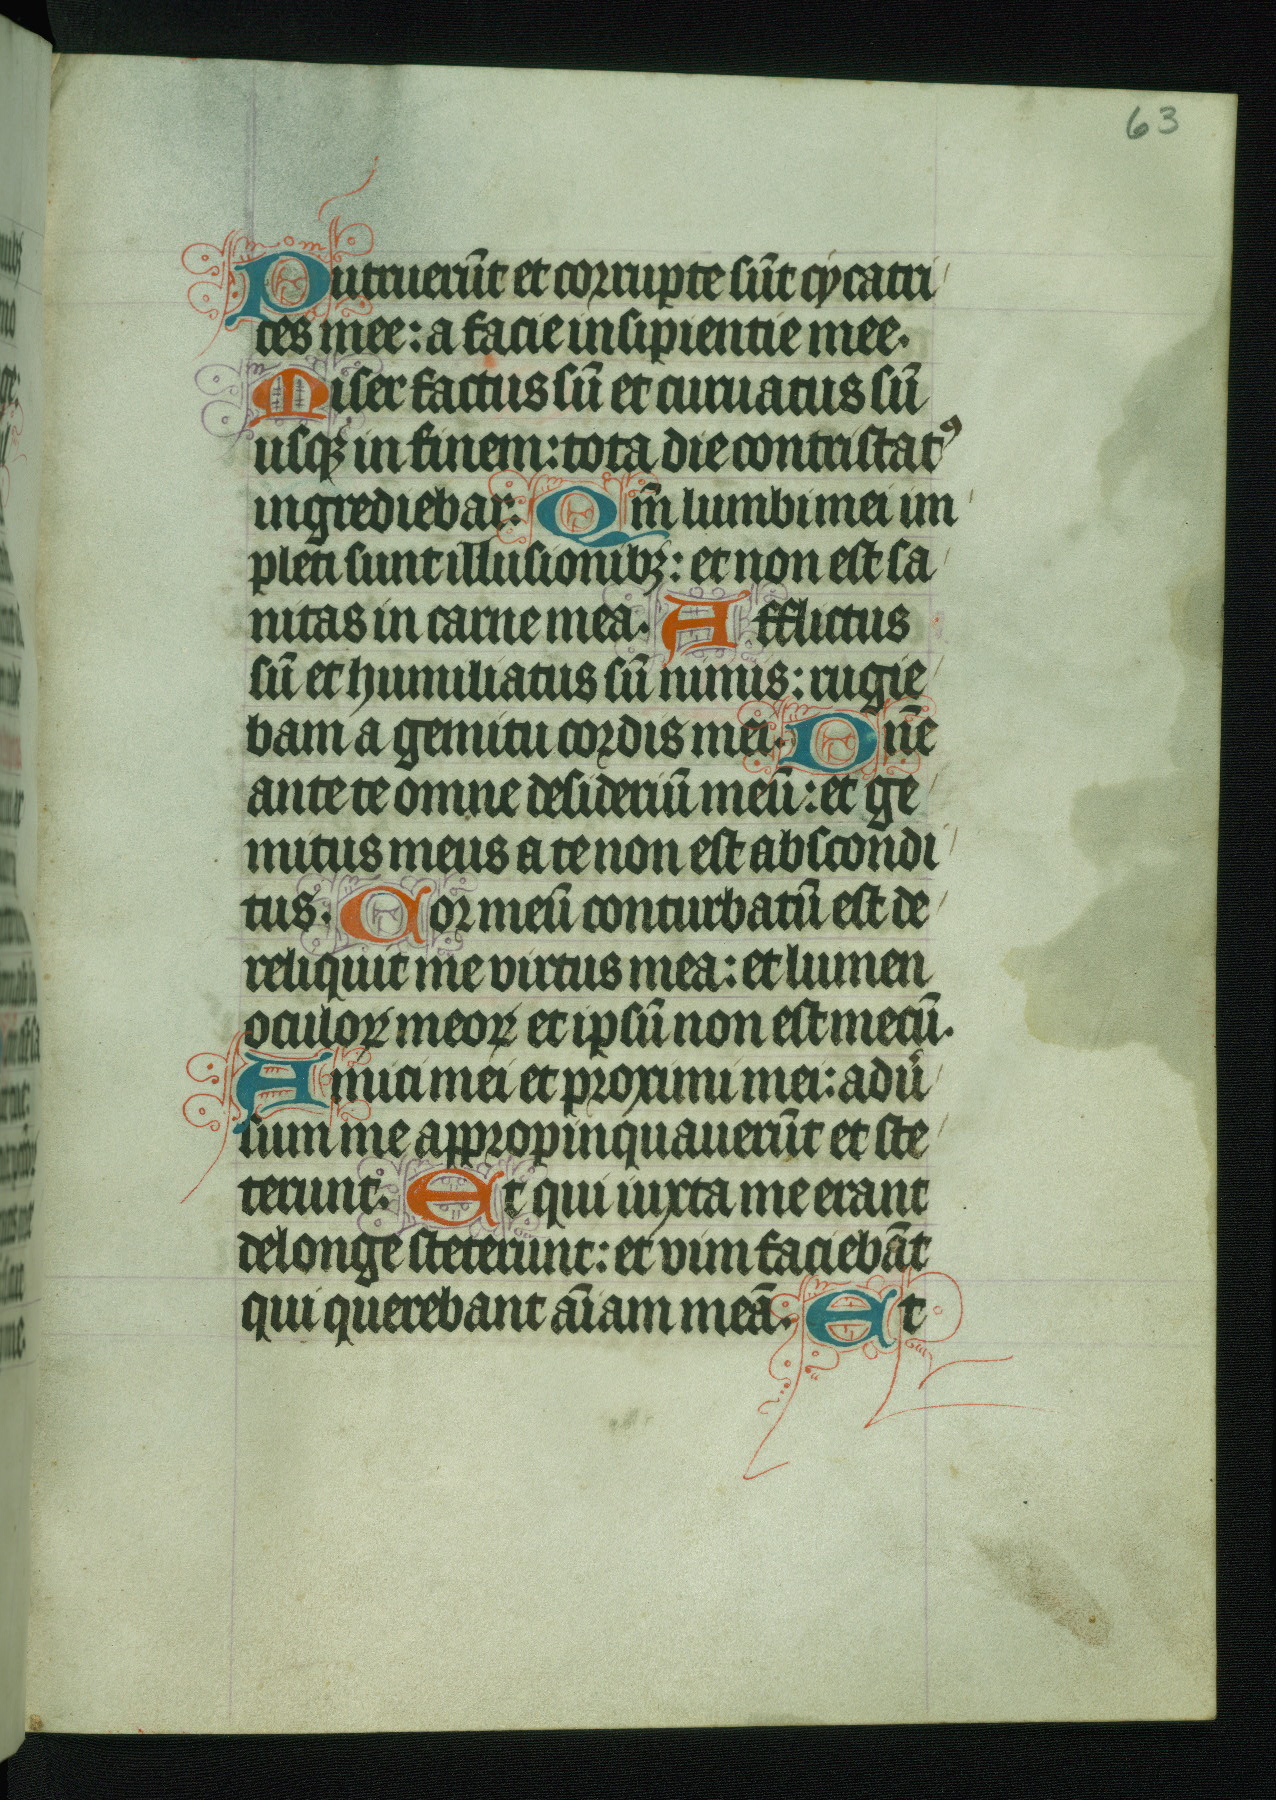 63
Putruerūt et corrupte sūt cycatri
ces mee: a facie insipientie mee.
Miser factus sū et curuatus sū
usqꝫ in finem: tota die contristatꝰ
ingrediebar. Qm̄ lumbi mei im
pleti sunt illusionibꝫ: et non est sa
nitas in carne mea. Afflictus
sū et humiliatus sū nimis: rugie
bam a gemitu cordis mei. Dn̄e
ante te omne desideriū meū: et ge
mitus meus a te non est abscondi
tus. Cor meū conturbatū est de
reliquit me virtus mea: et lumen
oculoꝝ meoꝝ et ipsū non est mecū.
Amici mei et proximi mei: adu͛
sum me appropinquauerūt et ste
terunt. Et qui iuxta me erant
de longe steterunt: et vim faciebāt
qui querebant aīam meā. Et